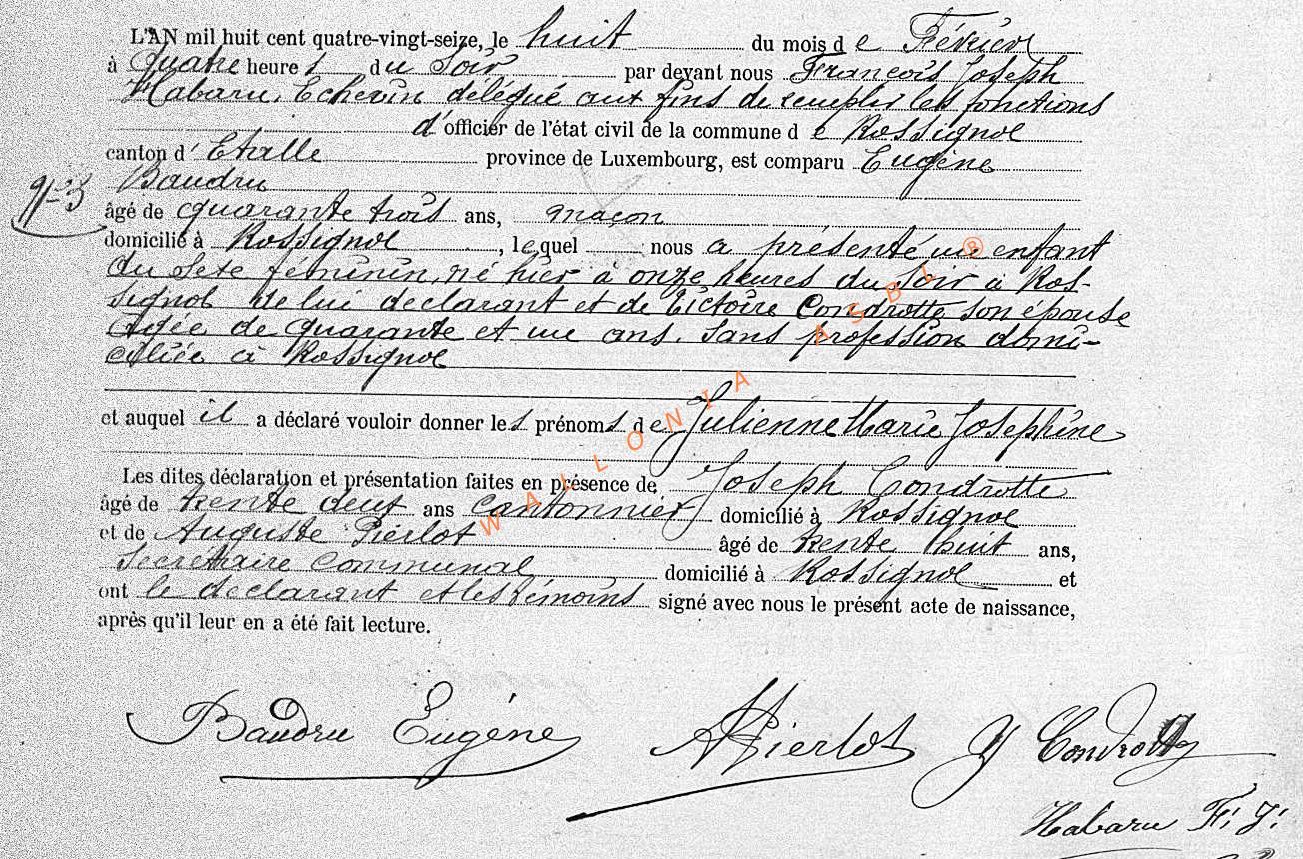 L'AN mil huit cent quatre-vingt-seize, le huit du mois de Février
à Quatre heures du Soir par devant nous François Joseph
Habaru, Echevin délégué aux fins de remplir les fonctions
d'officier de l'état civil de la commune de Rossignol
canton d'Etalle province de Luxembourg, est comparu Eugène
Baudru
âgé de quarante trois ans, maçon
domicilié à Rossignol, lequel nous a présenté un enfant
du sexe féminin, né hier à onze heures du Soir à Ros-
signol de lui déclarant et de Victoire Condrotte son épouse
agée de quarante et un ans, sans profession domi-
ciliée à Rossignol
et auquel il a déclaré vouloir donner les prénoms de Julienne Marie Joséphine
Les dites déclaration et présentation faites en présence de Joseph Condrotte
âgé de trente deux ans cantonnier domicilié à Rossignol
et de Auguste Pierlot âgé de trente huit ans,
Secrétaire Communal domicilié à Rossignol et
ont le déclarant et les témoins signé avec nous le présent acte de naissance,
après qu'il leur en a été fait lecture.
Baudru Eugène APierlot J Condrotte
Habaru F. J.
WALLONIA ASBL ®